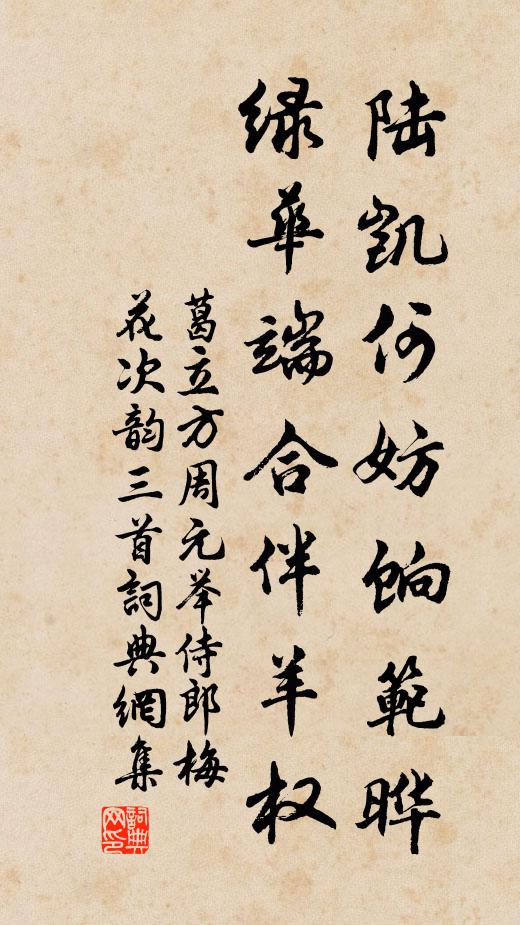 陆凯何妨饷範晔
绿華端合伴羊权
葛立方周元举侍郎梅
花次韵三首詞典網集
詞典网印